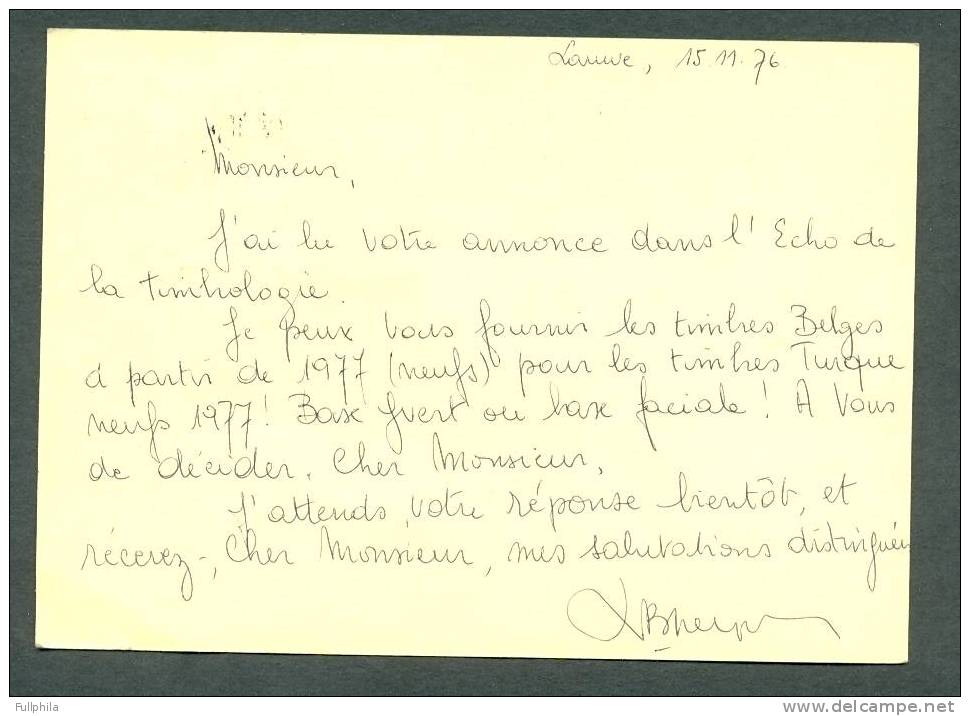 Lauwe, 15.11.76.
Monsieur,
J'ai lu votre annonce dans l'Echo de
la timbrologie.
Je peux vous fournir les timbres Belges
à partir de 1977 (neufs) pour les timbres Turque
neufs 1977! Base Yvert ou base faciale! A vous
de décider. Cher Monsieur.
J'attends votre réponse bientôt, et
récevez-, Cher Monsieur, mes salutations distinguées
Fullphila
delcampe.net